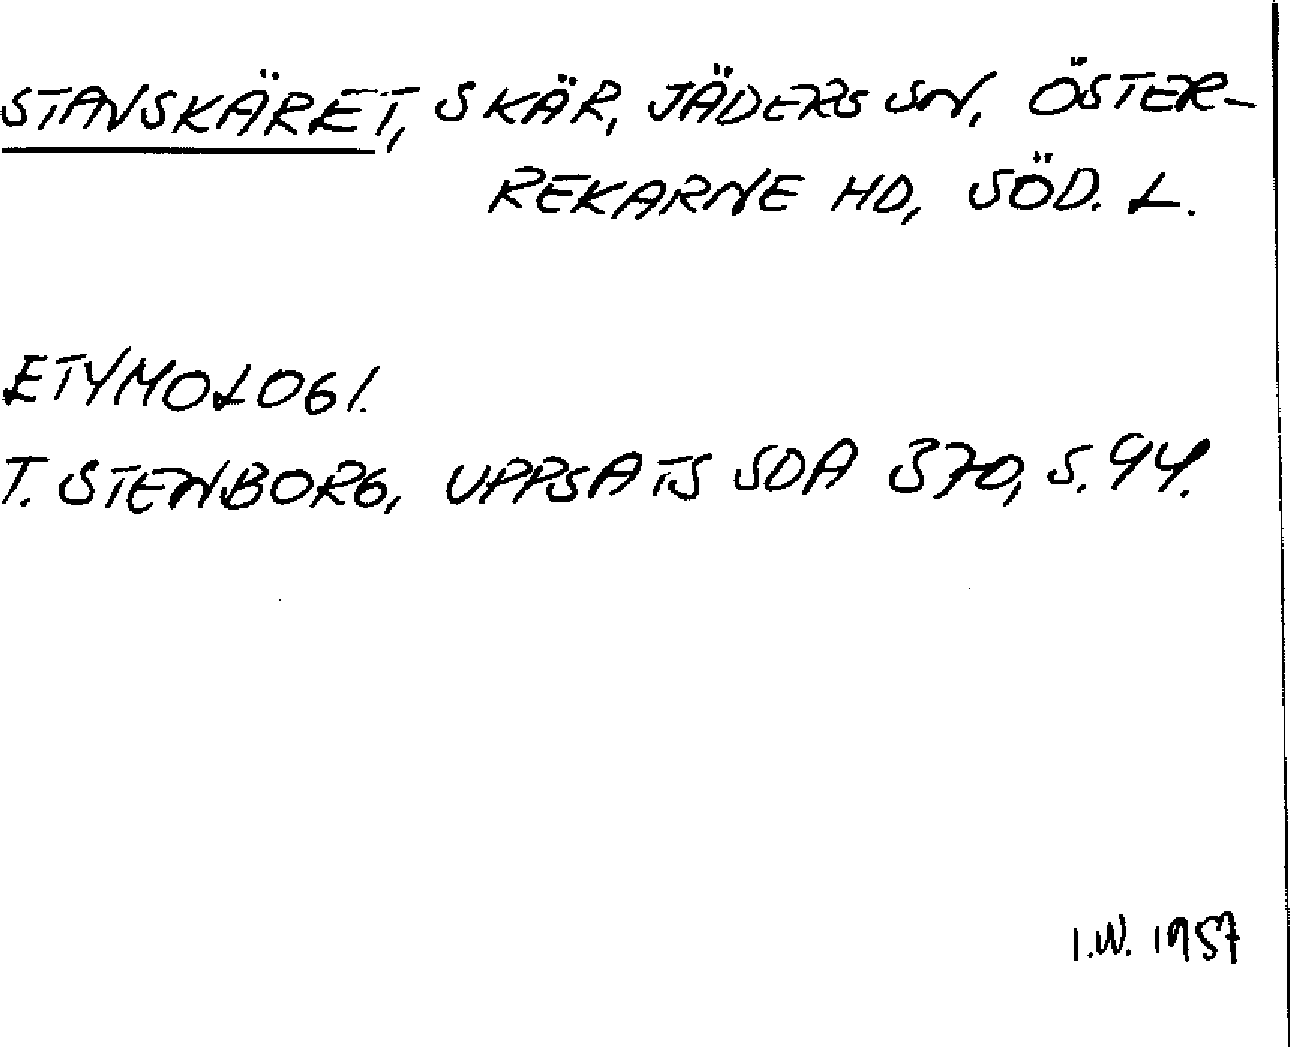 STAVSKÄRET, SKÄR, JÄDERS SN, ÖSTER-
REKARNE HD, SÖD. L.
ETYMOLOGI.
T. STENBORG, UPPSATS SOA 370, S. 94.
I.W. 1957